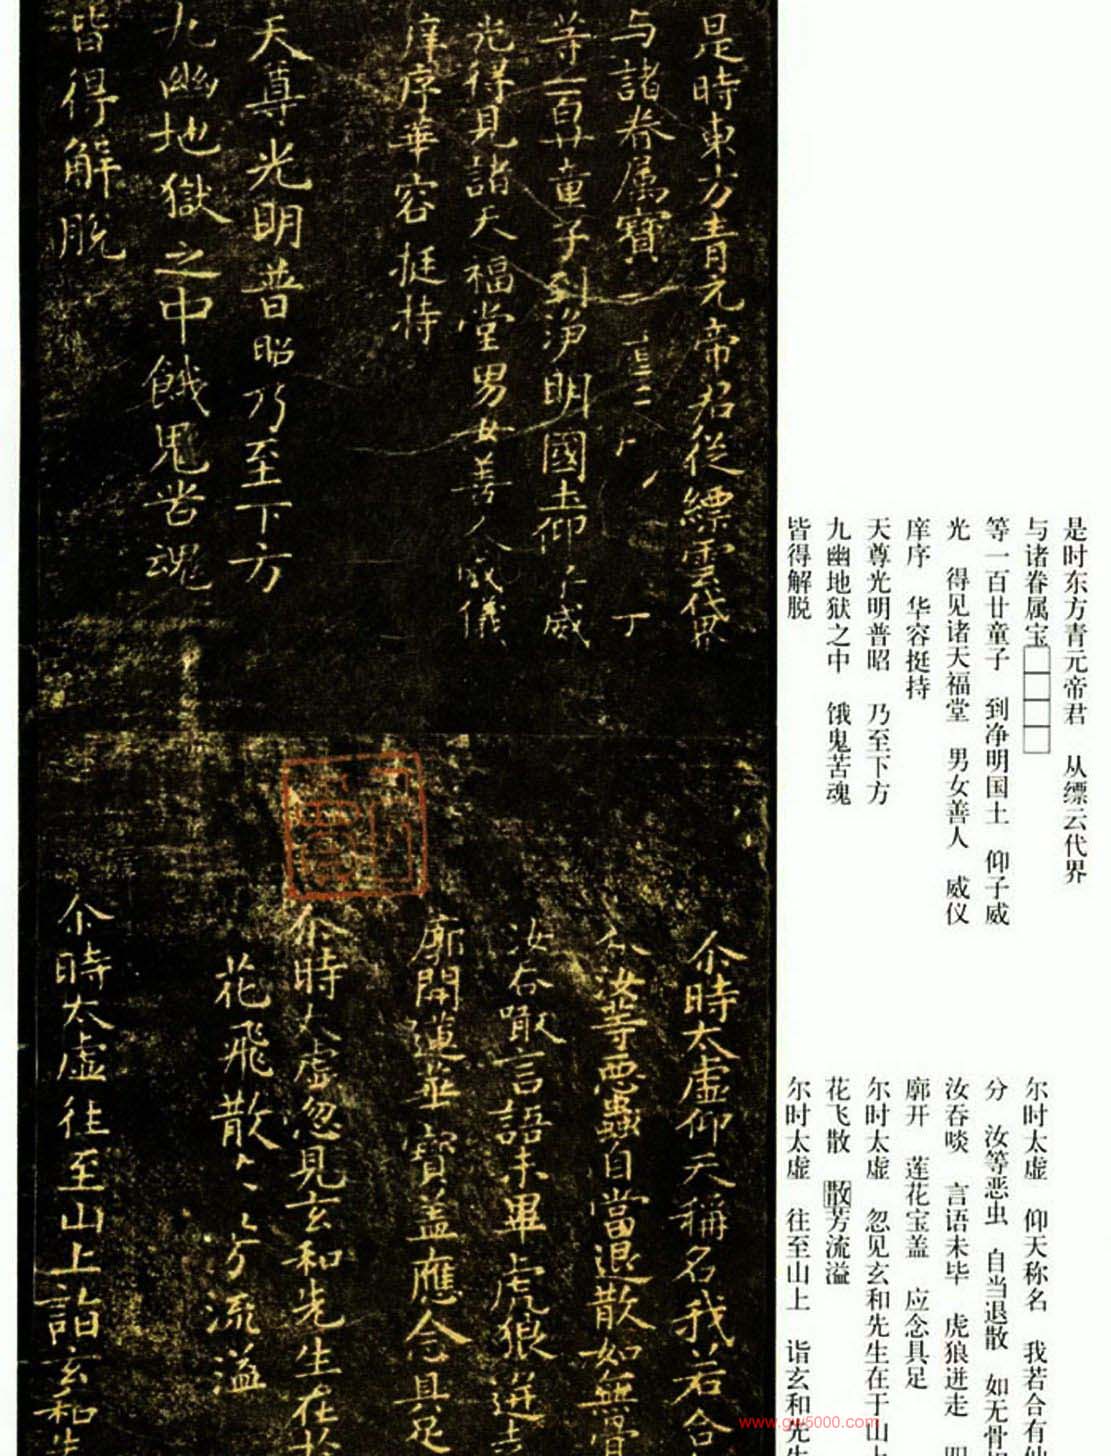 是時東方青元帝君從縹雲代界
与諸眷属寶
等一百廿童子到淨明國土仰子威
光得見諸天福堂男女善人威儀
庠序華容挺持
天尊光明普昭乃至下方
九幽地獄之中餓鬼苦魂
皆得解脱
尒時太虛仰天稱名我若合
分汝等惡蟲自當退散如無骨
汝吞噉言語未畢虎狼迸走
廓開蓮花寶盖應念具足
尒時太虛忽見玄和先生在於
花飛散散芳流溢
尒時太虛往至山上詣玄和先
是时东方青元帝君 从缥云代界
与诸眷属宝□□□□
等一百廿童子 到净明国土 仰子威
光 得见诸天福堂 男女善人 威仪
庠序 华容挺持
天尊光明普昭 乃至下方
九幽地狱之中 饿鬼苦魂
皆得解脱
尔时太虚 仰天称名 我若合有仙
分 汝等恶虫 自当退散 如无骨
汝吞啖 言语未毕 虎狼迸走
廓开 莲花宝盖 应念具足
尔时太虚 忽见玄和先生在于山
花飞散 散芳流溢
尔时太虚 往至山上 诣玄和先
www.gw5000.com